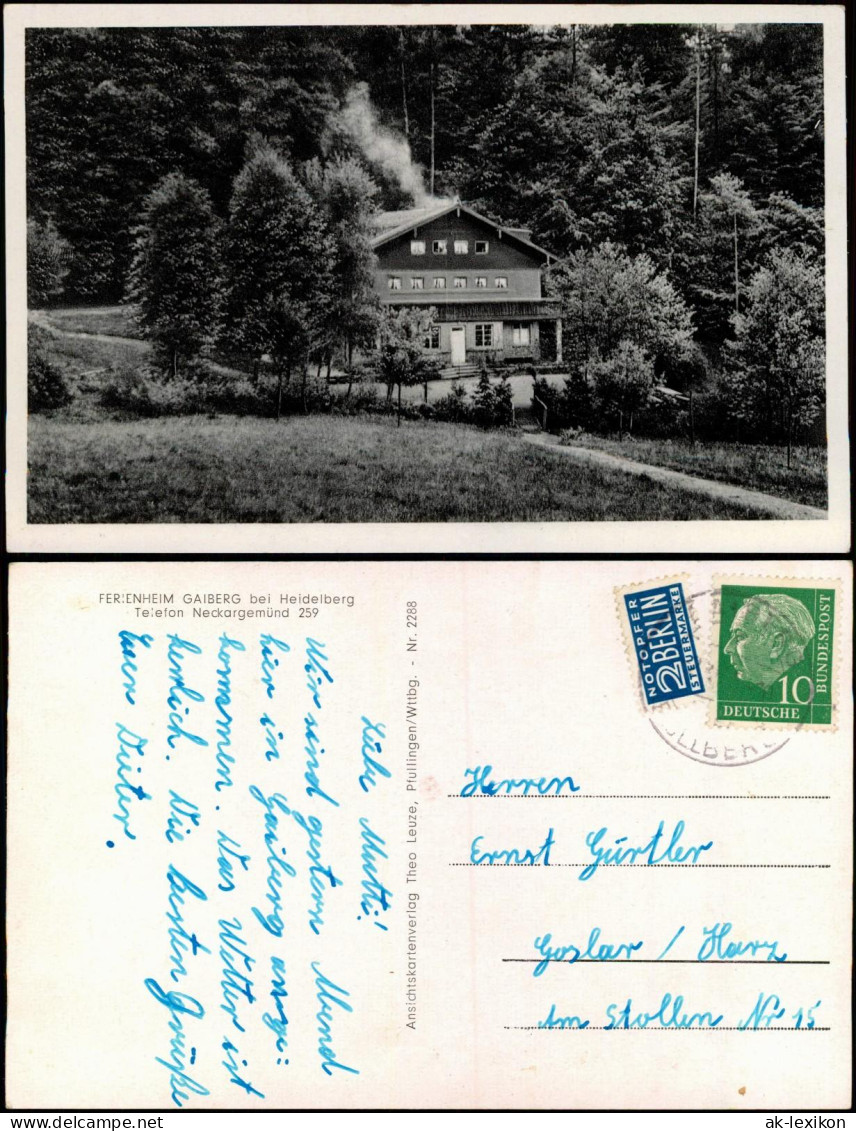 FERIENHEIM GAIBERG bei Heidelberg
Telefon Neckargemünd 259
Liebe Mutti!
Wir sind gestern Abend
hier in Gaiberg ange:
kommen. Das Wetter ist
herrlich. Die besten Grüße
Euer Dieter.
Ansichtskartenverlag Theo Leuze, Pfullingen/Wttbg. - Nr. 2288
NOTOPFER
2 BERLIN
STEUERMARKE
10
DEUTSCHE
BUNDESPOST
Herren
Ernst Gürtler
Goslar / Harz
Am Stollen Nr 15
ak-lexikon